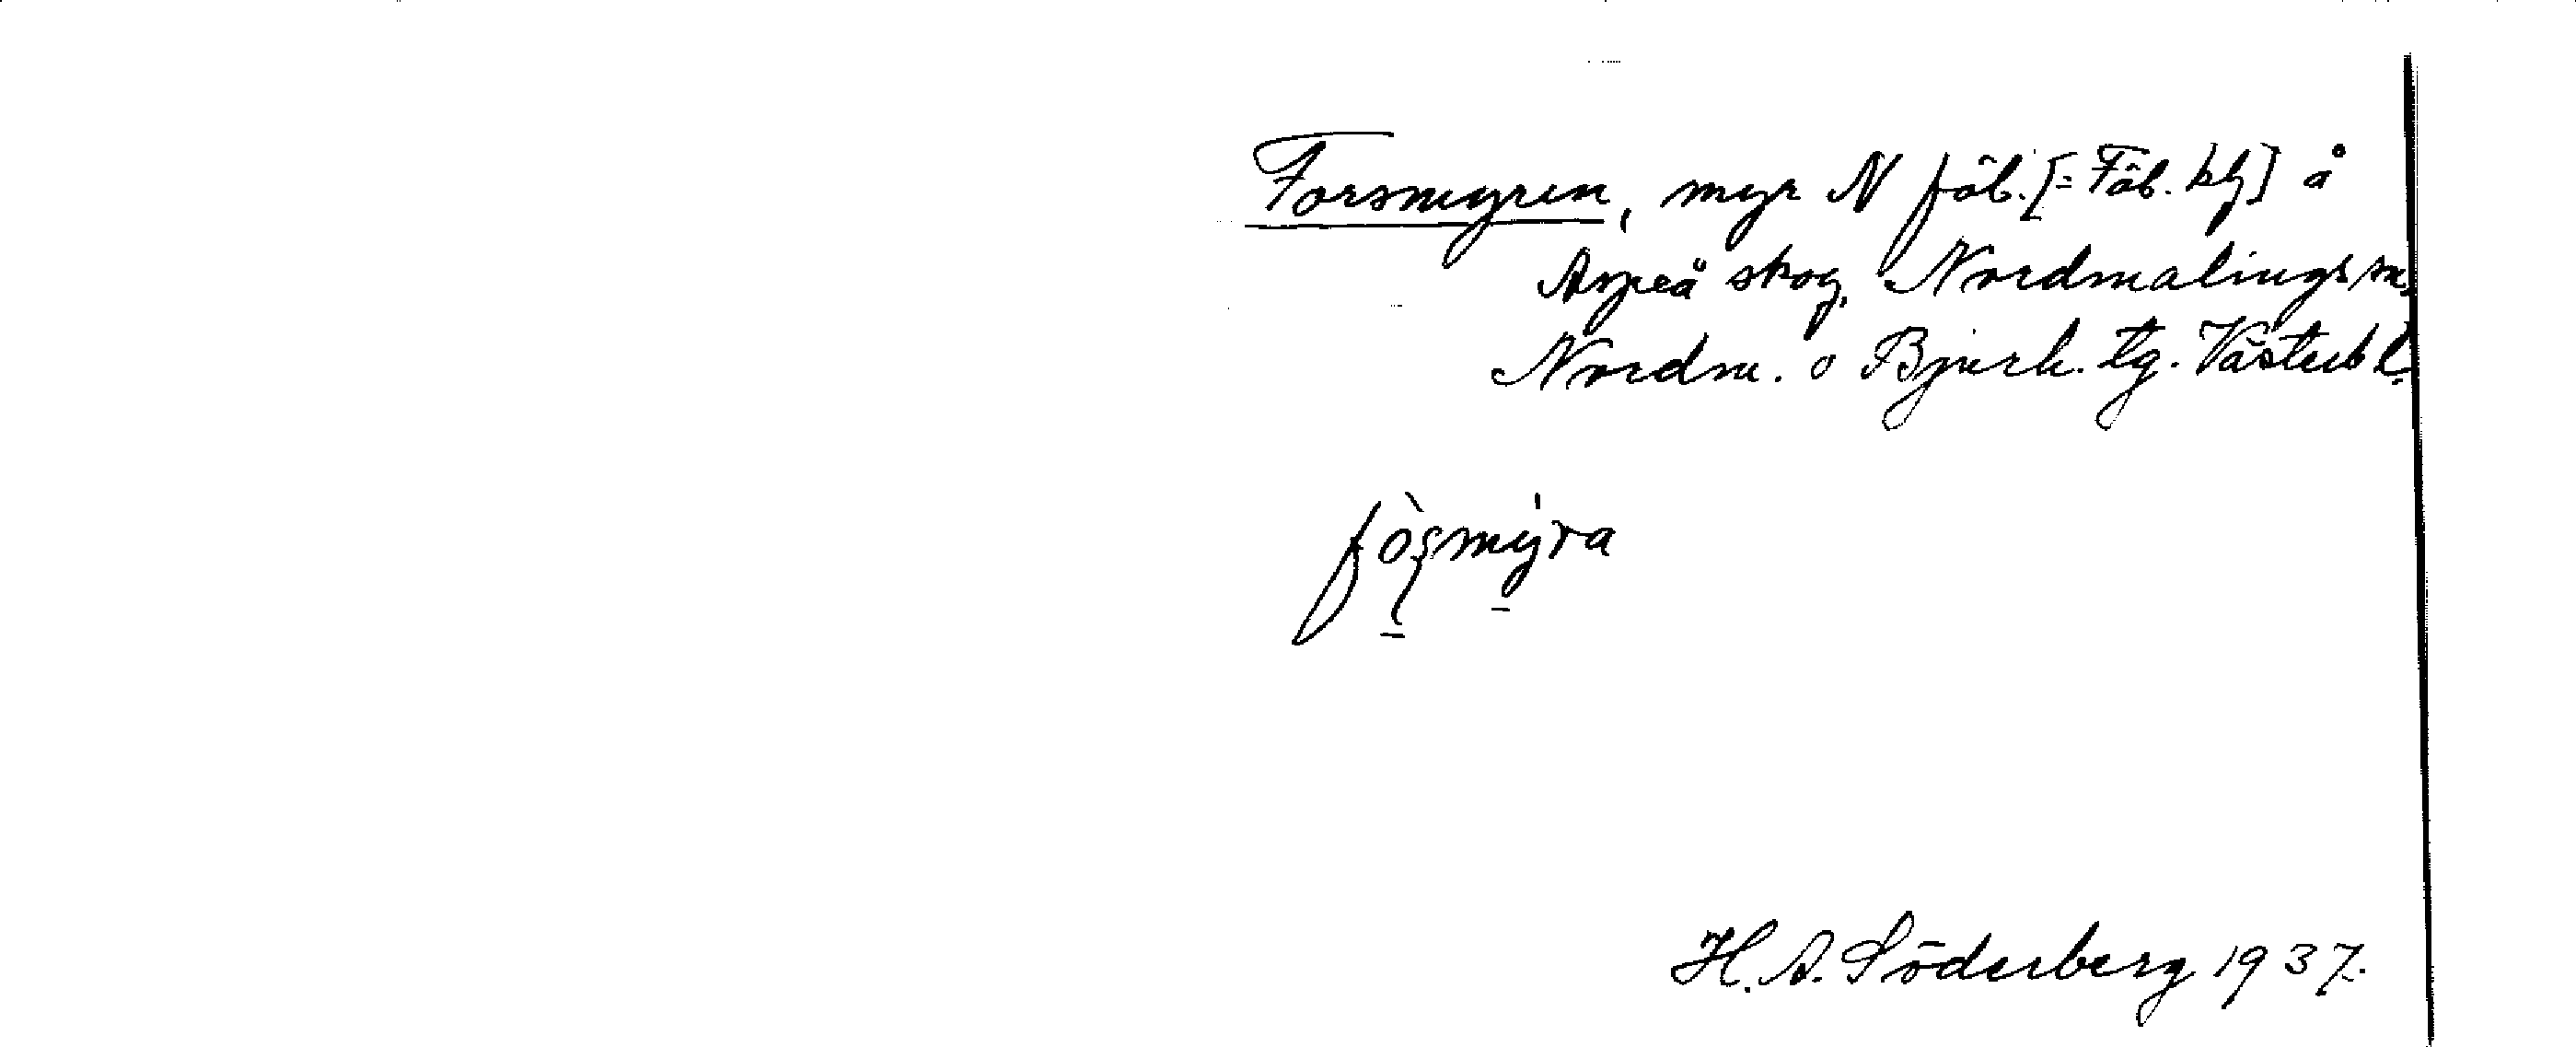 Forsmyren, myr N fäb. [= Fäb. blg] å
Aspeå skog, Nordmalings sn,
Nordm. o Bjurh. tg. Västerb l.
fòs̩my̍ra
H. A. Söderberg 1937.